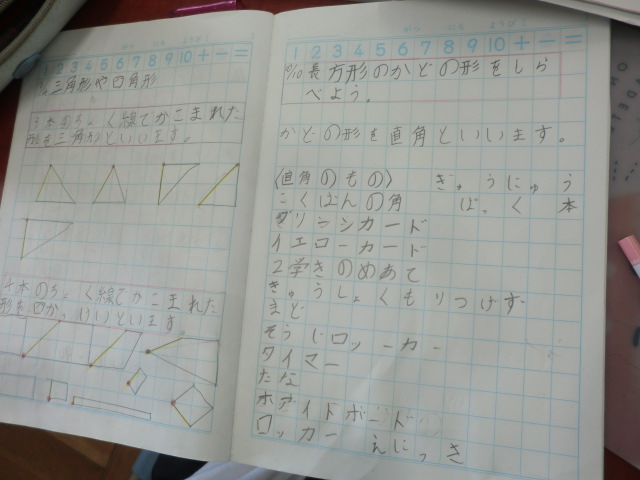 1 2 3 4 5 6 7 8 9 10 + − =
三角形や四角形
3本のちょく線でかこまれた
形を三角形といいます。
4本のちょく線でかこまれた
形を四かっけいといいます。
1 2 3 4 5 6 7 8 9 10 + − =
長方形のかどの形をしら
べよう。
かどの形を直角といいます。
〈直角のもの〉 ぎゅうにゅう
こくばんの角 ぱっく 本
グリーンカード
イエローカード
2学きのめあて
きゅうしょくもりつけず
まど
そうじロッカー
タイマー
たな
ホワイトボード
ロッカー えにっき